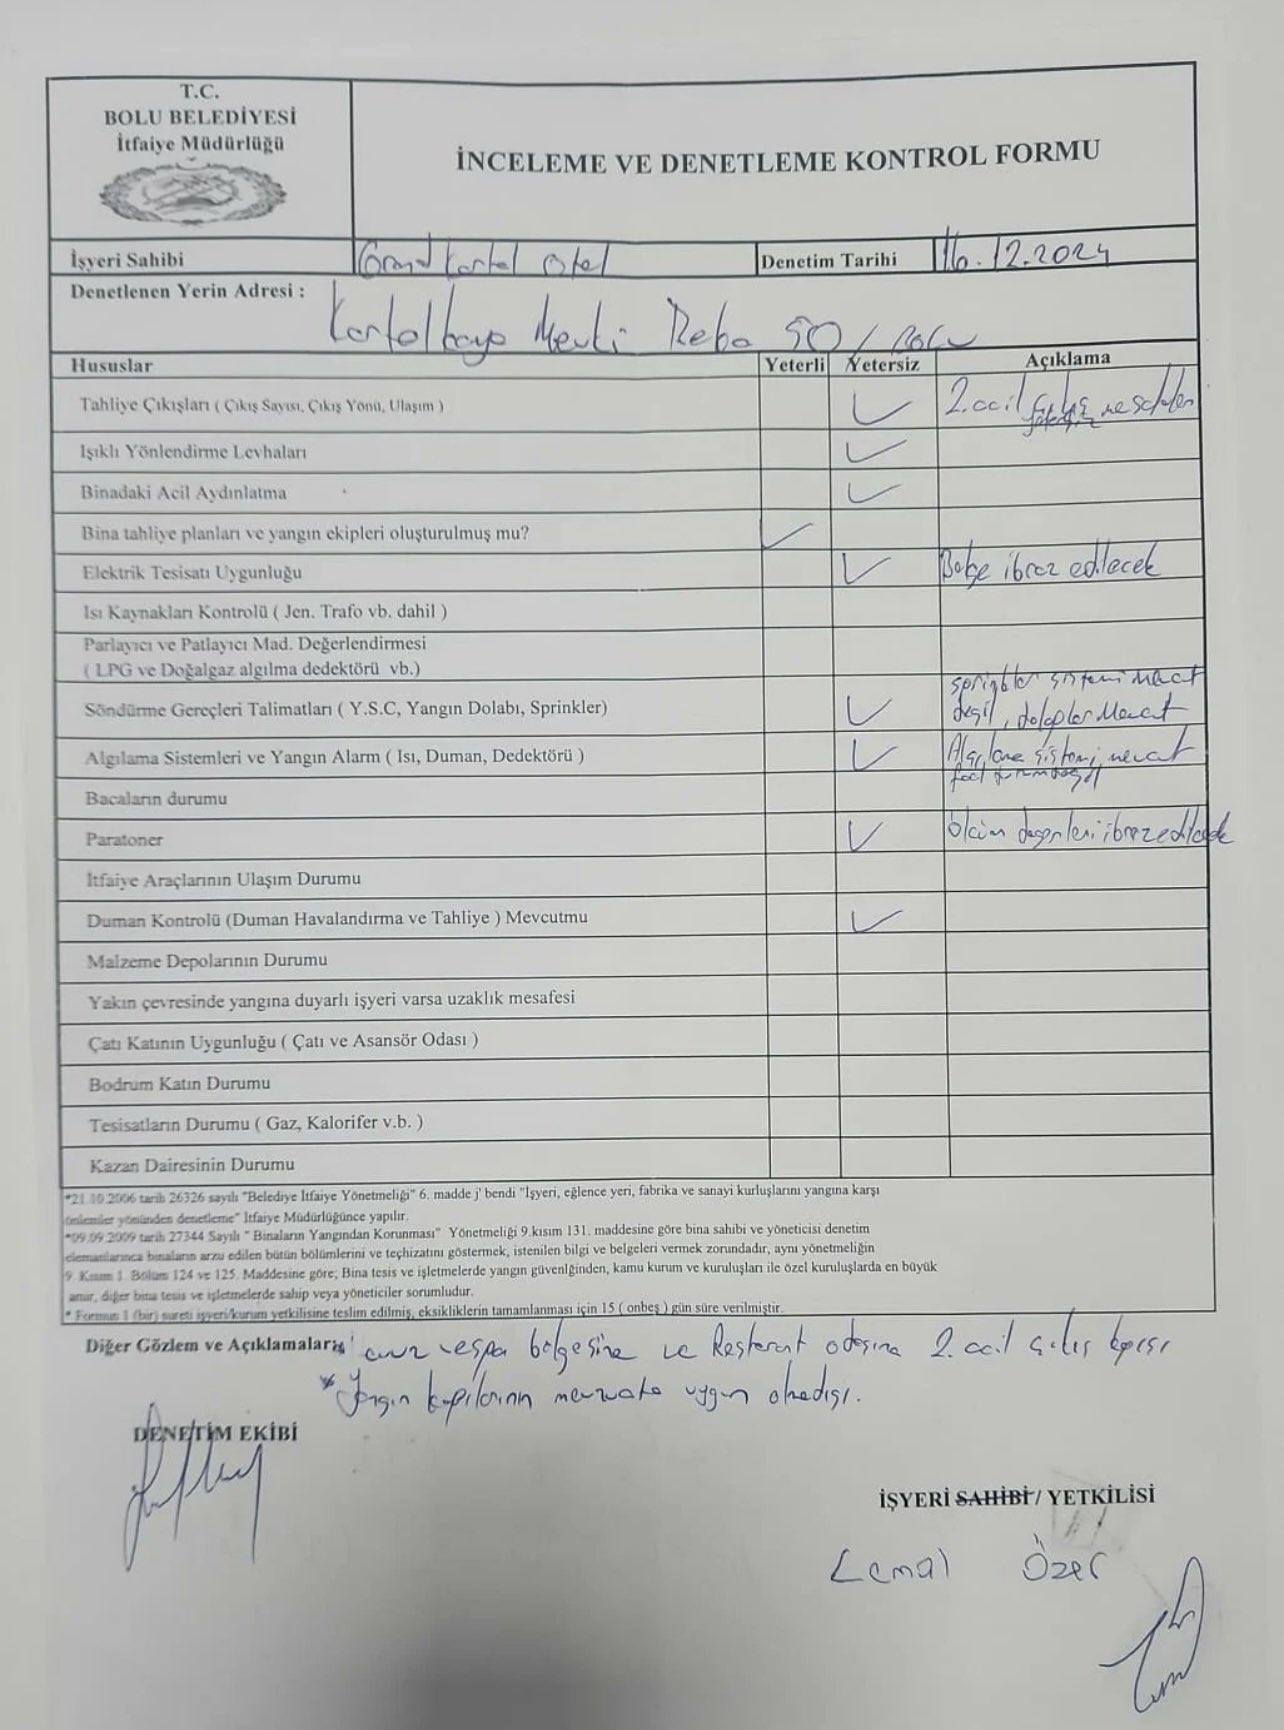 T.C.
BOLU BELEDİYESİ
İtfaiye Müdürlüğü
İNCELEME VE DENETLEME KONTROL FORMU
İşyeri Sahibi Grand Kartal Otel Denetim Tarihi 16.12.2024
Denetlenen Yerin Adresi : Kartalkaya Mevki No: 50 / Bolu
Hususlar Yeterli Yetersiz Açıklama
Tahliye Çıkışları ( Çıkış Sayısı, Çıkış Yönü, Ulaşım ) 2. acil çıkış
Işıklı Yönlendirme Levhaları
Binadaki Acil Aydınlatma
Bina tahliye planları ve yangın ekipleri oluşturulmuş mu?
Elektrik Tesisatı Uygunluğu Belge ibraz edilecek
Isı Kaynakları Kontrolü ( Jen. Trafo vb. dahil )
Parlayıcı ve Patlayıcı Mad. Değerlendirmesi
( LPG ve Doğalgaz algılma dedektörü vb.)
Söndürme Gereçleri Talimatları ( Y.S.C, Yangın Dolabı, Sprinkler) sprinkler sistemi mevcut
değil, dolaplar Mevcut
Algılama Sistemleri ve Yangın Alarm ( Isı, Duman, Dedektörü ) Algılama sistemi mevcut
Bacaların durumu
Paratoner ölçüm değerleri ibraz edilecek
İtfaiye Araçlarının Ulaşım Durumu
Duman Kontrolü (Duman Havalandırma ve Tahliye ) Mevcutmu
Malzeme Depolarının Durumu
Yakın çevresinde yangına duyarlı işyeri varsa uzaklık mesafesi
Çatı Katının Uygunluğu ( Çatı ve Asansör Odası )
Bodrum Katın Durumu
Tesisatların Durumu ( Gaz, Kalorifer v.b. )
Kazan Dairesinin Durumu
*21.10.2006 tarih 26326 sayılı "Belediye İtfaiye Yönetmeliği" 6. madde j' bendi "İşyeri, eğlence yeri, fabrika ve sanayi kurluşlarını yangına karşı
önlemler yönünden denetleme" İtfaiye Müdürlüğünce yapılır.
*09.09.2009 tarih 27344 Sayılı " Binaların Yangından Korunması" Yönetmeliği 9.kısım 131. maddesine göre bina sahibi ve yöneticisi denetim
elemanlarınca binaların arzu edilen bütün bölümlerini ve teçhizatını göstermek, istenilen bilgi ve belgeleri vermek zorundadır, aynı yönetmeliğin
9. Kısım 1. Bölüm 124 ve 125. Maddesine göre; Bina tesis ve işletmelerde yangın güvenlğinden, kamu kurum ve kuruluşları ile özel kuruluşlarda en büyük
amir, diğer bina tesis ve işletmelerde sahip veya yöneticiler sorumludur.
* Formun 1 (bir) sureti işyeri/kurum yetkilisine teslim edilmiş, eksikliklerin tamamlanması için 15 ( onbeş ) gün süre verilmiştir.
Diğer Gözlem ve Açıklamalar: bölgesine ve Restorant odasına 2. acil çıkış kapısı
* Yangın kapılarının mevzuata uygun olmadığı.
DENETİM EKİBİ
İŞYERİ SAHİBİ / YETKİLİSİ
Cemal Özer